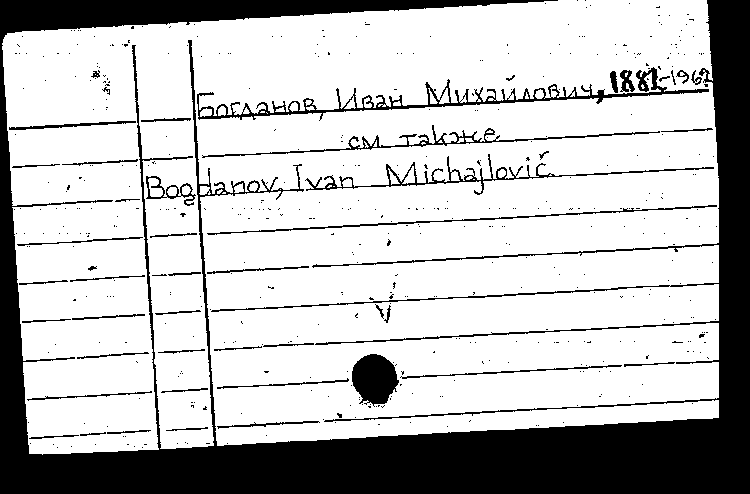 Богданов, Иван Михайлович, 1882-1962
см также
Bogdanov, Ivan Michajlovič